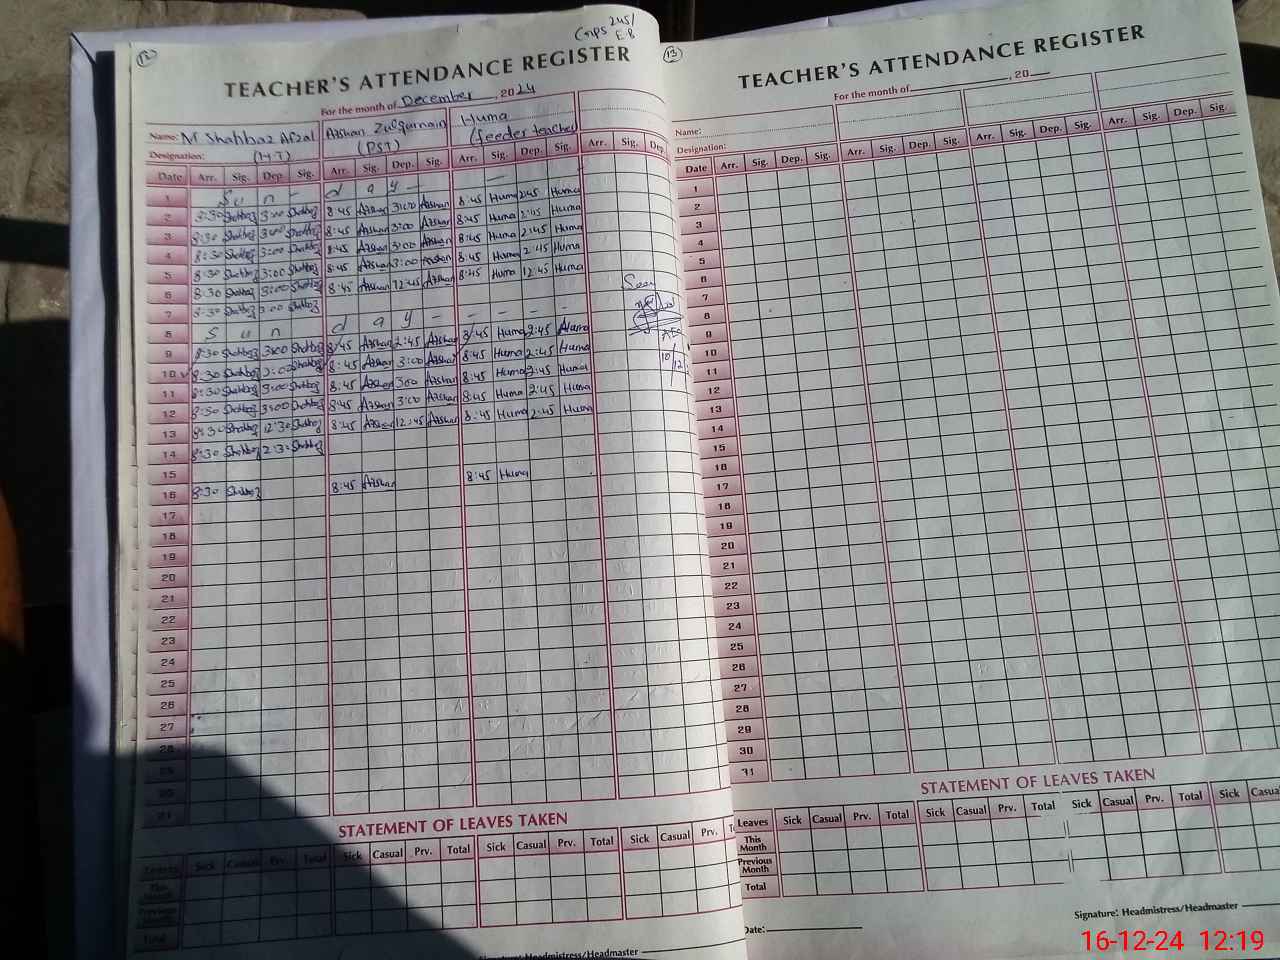 12
GMPS 245/
E.B
TEACHER'S ATTENDANCE REGISTER
For the month of December, 2024
Name: M Shahbaz Afzal Afshan Zulqurnain Huma
Designation: (H.T) (PST) (feeder teacher
Date Arr. Sig. Dep. Sig. Arr. Sig. Dep. Sig. Arr. Sig. Dep. Sig. Arr. Sig. Dep.
1 S u n - d a y -
2 8:30 Shahbaz 3:00 Shahbaz 8:45 Afshan 3:00 Afshan 8:45 Huma 2:45 Huma
3 8:30 Shahbaz 3:00 Shahbaz 8:45 Afshan 3:00 Afshan 8:45 Huma 2:45 Huma
4 8:30 Shahbaz 3:00 Shahbaz 8:45 Afshan 3:00 Afshan 8:45 Huma 2:45 Huma
5 8:30 Shahbaz 3:00 Shahbaz 8:45 Afshan 3:00 Afshan 8:45 Huma 2:45 Huma
6 8:30 Shahbaz 3:00 Shahbaz 8:45 Afshan 12:45 Afshan 8:45 Huma 12:45 Huma
7 8:30 Shahbaz 3:00 Shahbaz
Seen
8 S u n d a y - - - -
9 8:30 Shahbaz 3:00 Shahbaz 8:45 Afshan 2:45 Afshan 8:45 Huma 2:45 Huma
10 8:30 Shahbaz 3:00 Shahbaz 8:45 Afshan 3:00 Afshan 8:45 Huma 2:45 Huma
10/12
11 8:30 Shahbaz 3:00 Shahbaz 8:45 Afshan 3:00 Afshan 8:45 Huma 2:45 Huma
12 8:30 Shahbaz 3:00 Shahbaz 8:45 Afshan 3:00 Afshan 8:45 Huma 2:45 Huma
13 8:30 Shahbaz 12:30 Shahbaz 8:45 Afshan 12:45 Afshan 8:45 Huma 2:45 Huma
14 8:30 Shahbaz 2:30 Shahbaz
15
16 8:30 Shahbaz 8:45 Afshan 8:45 Huma
17
18
19
20
21
22
23
24
25
26
27
28
29
30
31
STATEMENT OF LEAVES TAKEN
Leaves Sick Casual Prv. Total Sick Casual Prv. Total Sick Casual Prv. Total Sick Casual Prv.
This Month
Previous Month
Total
Signature: Headmistress/Headmaster
13
TEACHER'S ATTENDANCE REGISTER
For the month of , 20
Name:
Designation:
Date Arr. Sig. Dep. Sig. Arr. Sig. Dep. Sig. Arr. Sig. Dep. Sig. Arr. Sig. Dep. Sig.
1
2
3
4
5
6
7
8
9
10
11
12
13
14
15
16
17
18
19
20
21
22
23
24
25
26
27
28
29
30
31
STATEMENT OF LEAVES TAKEN
Leaves Sick Casual Prv. Total Sick Casual Prv. Total Sick Casual Prv. Total Sick Casual
This Month
Previous Month
Total
Signature: Headmistress/Headmaster
Date:
16-12-24 12:19